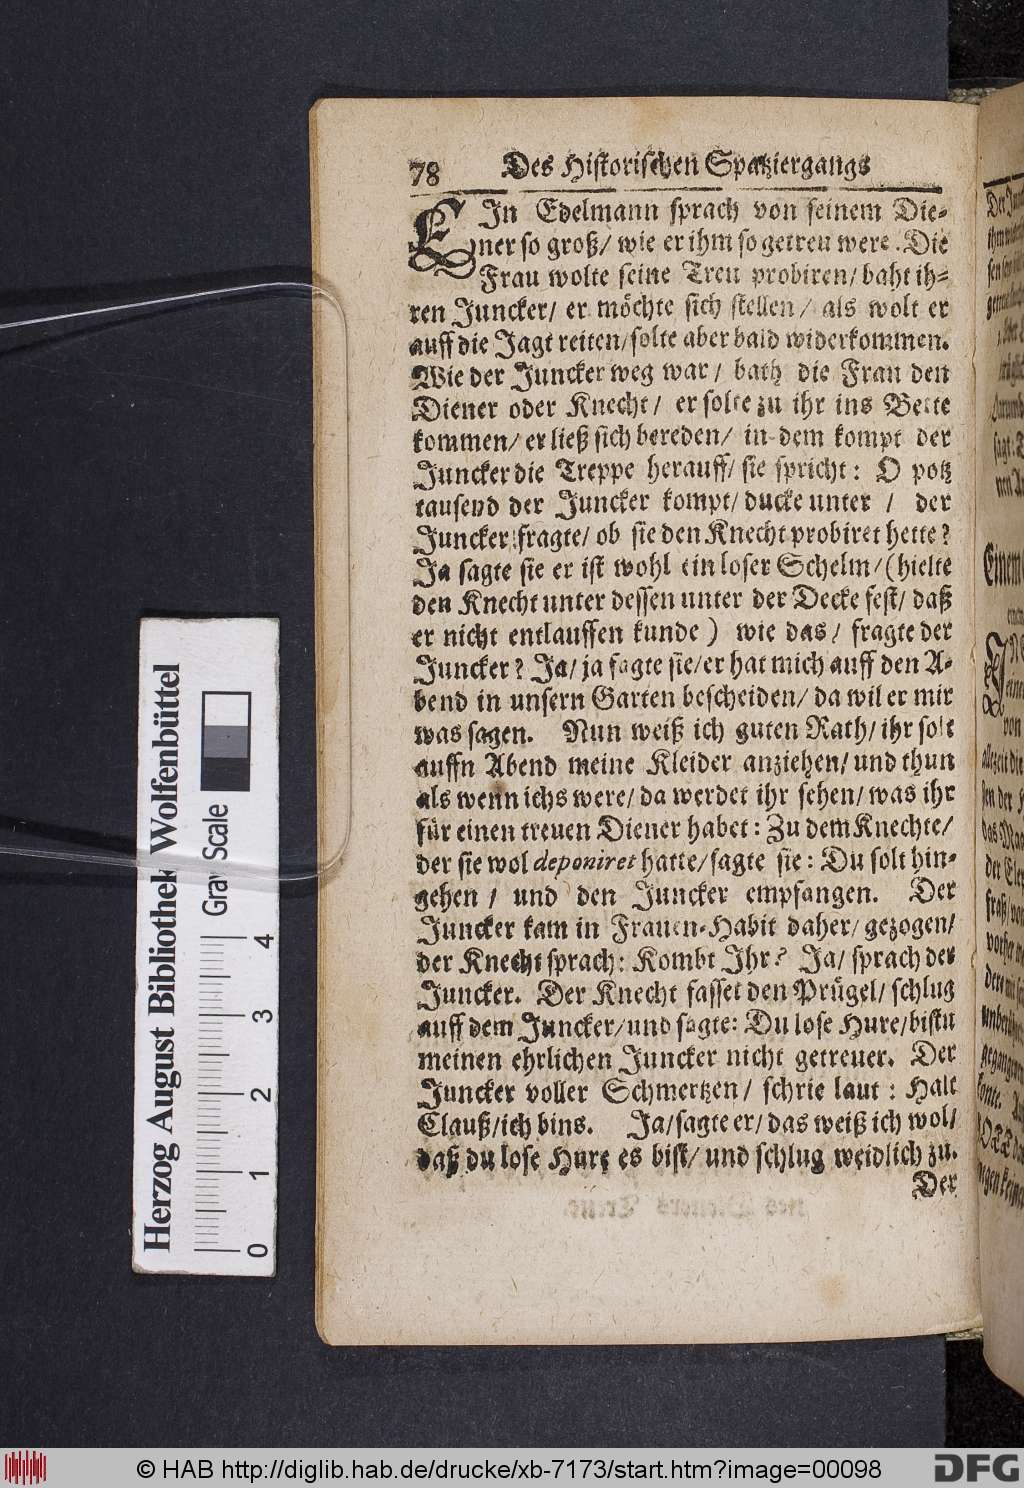 78 Des Historischen Spatziergangs
EIn Edelmann sprach von seinem Die-
ner so groß/ wie er ihm so getreu were. Die
Frau wolte seine Treu probiren/ baht ih-
ren Juncker/ er möchte sich stellen/ als wolt er
auff die Jagt reiten/ solte aber bald widerkommen.
Wie der Juncker weg war/ bath die Frau den
Diener oder Knecht/ er solte zu ihr ins Bette
kommen/ er ließ sich bereden/ in dem kompt der
Juncker die Treppe herauff/ sie spricht: O potz
tausend der Juncker kompt/ ducke unter / der
Juncker fragte/ ob sie den Knecht probiret hette?
Ja sagte sie er ist wohl ein loser Schelm/ (hielte
den Knecht unter dessen unter der Decke fest/ daß
er nicht entlauffen kunde) wie das/ fragte der
Juncker? Ja/ ja sagte sie/ er hat mich auff den A-
bend in unsern Garten bescheiden/ da wil er mir
was sagen. Nun weiß ich guten Rath/ ihr solt
auffn Abend meine Kleider anziehen/ und thun
als wenn ichs were/ da werdet ihr sehen/ was ihr
für einen treuen Diener habet: Zu dem Knechte/
der sie wol deponiret hatte/ sagte sie: Du solt hin-
gehen / und den Juncker empfangen. Der
Juncker kam in Frauen-Habit daher/ gezogen/
der Knecht sprach: Kombt Ihr? Ja/ sprach der
Juncker. Der Knecht fasset den Prügel/ schlug
auff dem Juncker/ und sagte: Du lose Hure/ bistu
meinen ehrlichen Juncker nicht getreuer. Der
Juncker voller Schmertzen/ schrie laut: Halt
Clauß/ ich bins. Ja/ sagte er/ das weiß ich wol/
daß du lose Hure es bist/ und schlug weidlich zu.
Der
Herzog August Bibliothek Wolfenbüttel
Gray Scale
0 1 2 3 4
© HAB http://diglib.hab.de/drucke/xb-7173/start.htm?image=00098
DFG